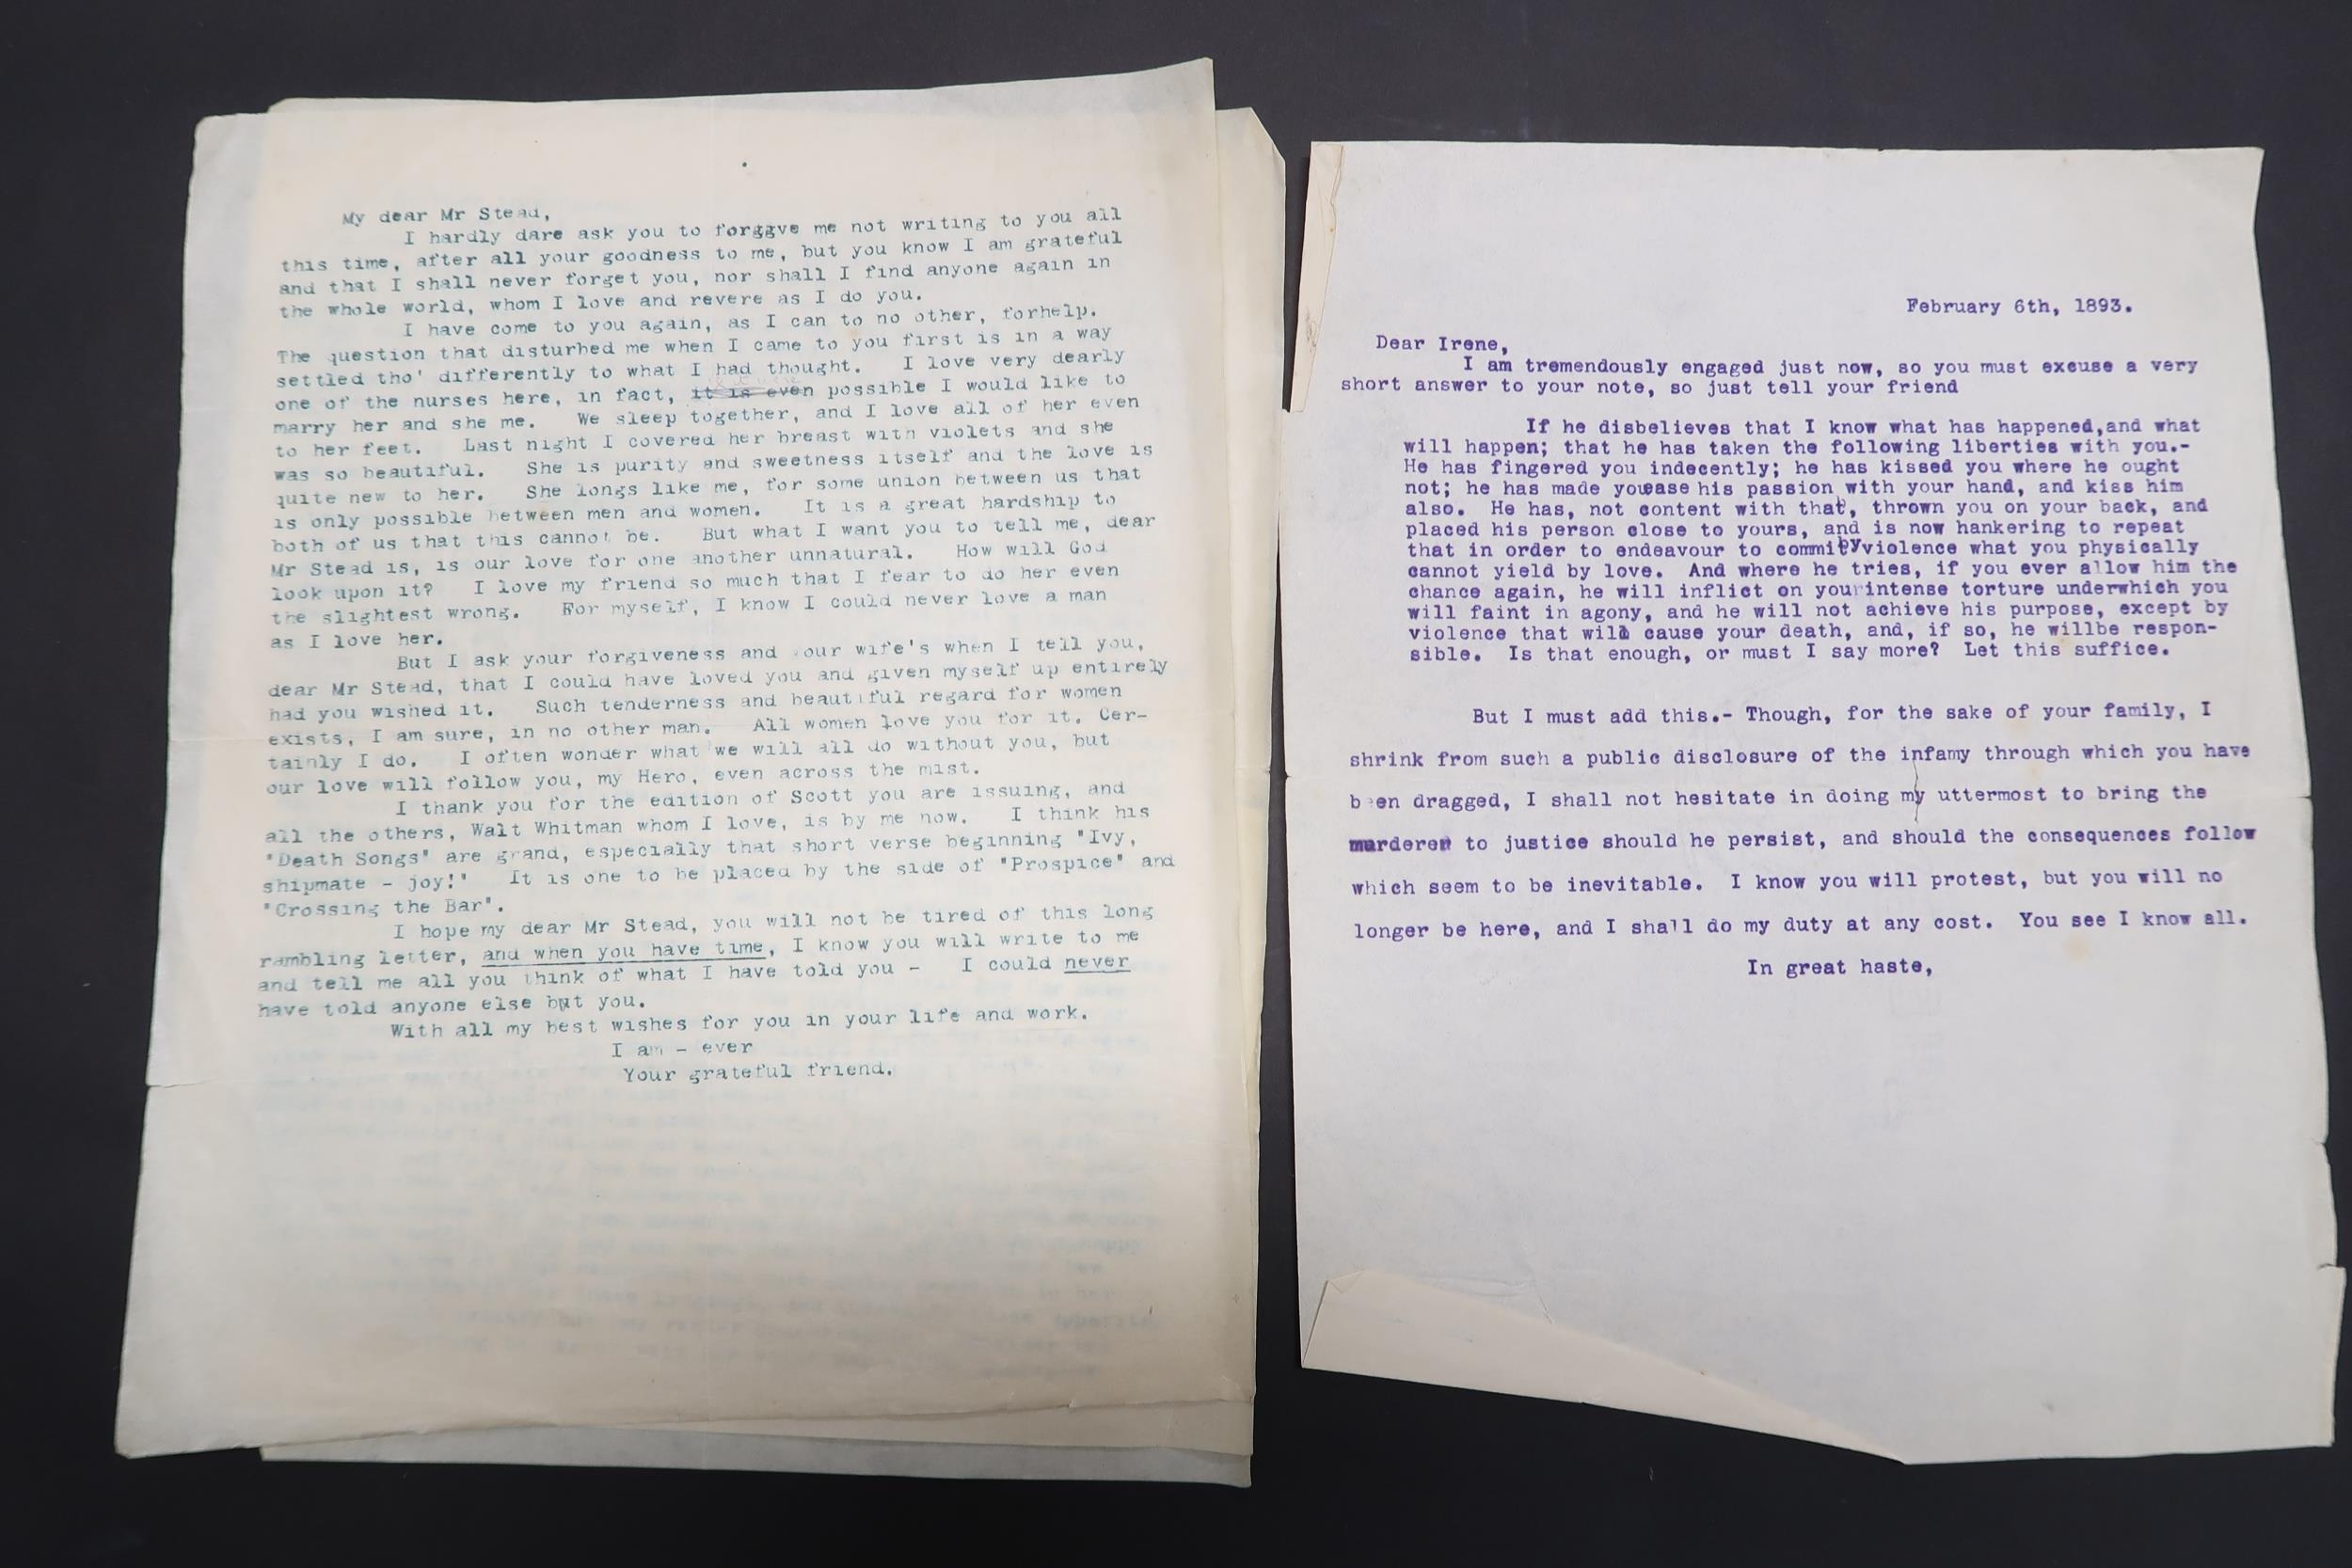 My dear Mr Stead,
I hardly dare ask you to forggve me not writing to you all
this time, after all your goodness to me, but you know I am grateful
and that I shall never forget you, nor shall I find anyone again in
the whole world, whom I love and revere as I do you.
I have come to you again, as I can to no other, forhelp.
The question that disturbed me when I came to you first is in a way
settled tho' differently to what I had thought. I love very dearly
one of the nurses here, in fact, it is even possible I would like to
marry her and she me. We sleep together, and I love all of her even
to her feet. Last night I covered her breast with violets and she
was so beautiful. She is purity and sweetness itself and the love is
quite new to her. She longs like me, for some union between us that
is only possible between men and women. It is a great hardship to
both of us that this cannot be. But what I want you to tell me, dear
Mr Stead is, is our love for one another unnatural. How will God
look upon it? I love my friend so much that I fear to do her even
the slightest wrong. For myself, I know I could never love a man
as I love her.
But I ask your forgiveness and your wife's when I tell you,
dear Mr Stead, that I could have loved you and given myself up entirely
had you wished it. Such tenderness and beautiful regard for women
exists, I am sure, in no other man. All women love you for it. Cer-
tainly I do. I often wonder what we will all do without you, but
our love will follow you, my Hero, even across the mist.
I thank you for the edition of Scott you are issuing, and
all the others, Walt Whitman whom I love, is by me now. I think his
"Death Songs" are grand, especially that short verse beginning "Ivy,
shipmate - joy!' It is one to be placed by the side of "Prospice" and
"Crossing the Bar".
I hope my dear Mr Stead, you will not be tired of this long
rambling letter, and when you have time, I know you will write to me
and tell me all you think of what I have told you - I could never
have told anyone else but you.
With all my best wishes for you in your life and work.
I am - ever
Your grateful friend.
February 6th, 1893.
Dear Irene,
I am tremendously engaged just now, so you must excuse a very
short answer to your note, so just tell your friend
If he disbelieves that I know what has happened,and what
will happen; that he has taken the following liberties with you.-
He has fingered you indecently; he has kissed you where he ought
not; he has made youease his passion with your hand, and kiss him
also. He has, not content with that, thrown you on your back, and
placed his person close to yours, and is now hankering to repeat
that in order to endeavour to commit by violence what you physically
cannot yield by love. And where he tries, if you ever allow him the
chance again, he will inflict on you intense torture underwhich you
will faint in agony, and he will not achieve his purpose, except by
violence that will cause your death, and, if so, he willbe respon-
sible. Is that enough, or must I say more? Let this suffice.
But I must add this.- Though, for the sake of your family, I
shrink from such a public disclosure of the infamy through which you have
been dragged, I shall not hesitate in doing my uttermost to bring the
murderer to justice should he persist, and should the consequences follow
which seem to be inevitable. I know you will protest, but you will no
longer be here, and I shall do my duty at any cost. You see I know all.
In great haste,